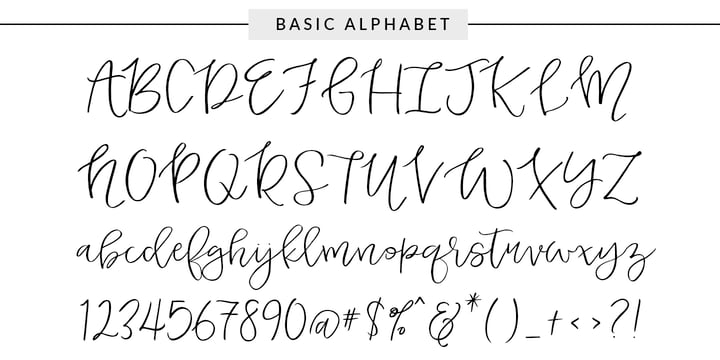 BASIC ALPHABET
ABCDEFGHIJKLM
NOPQRSTUVWXYZ
abcdefghijklmnopqrstuvwxyz
1234567890@#$%^&*()_+<>?!